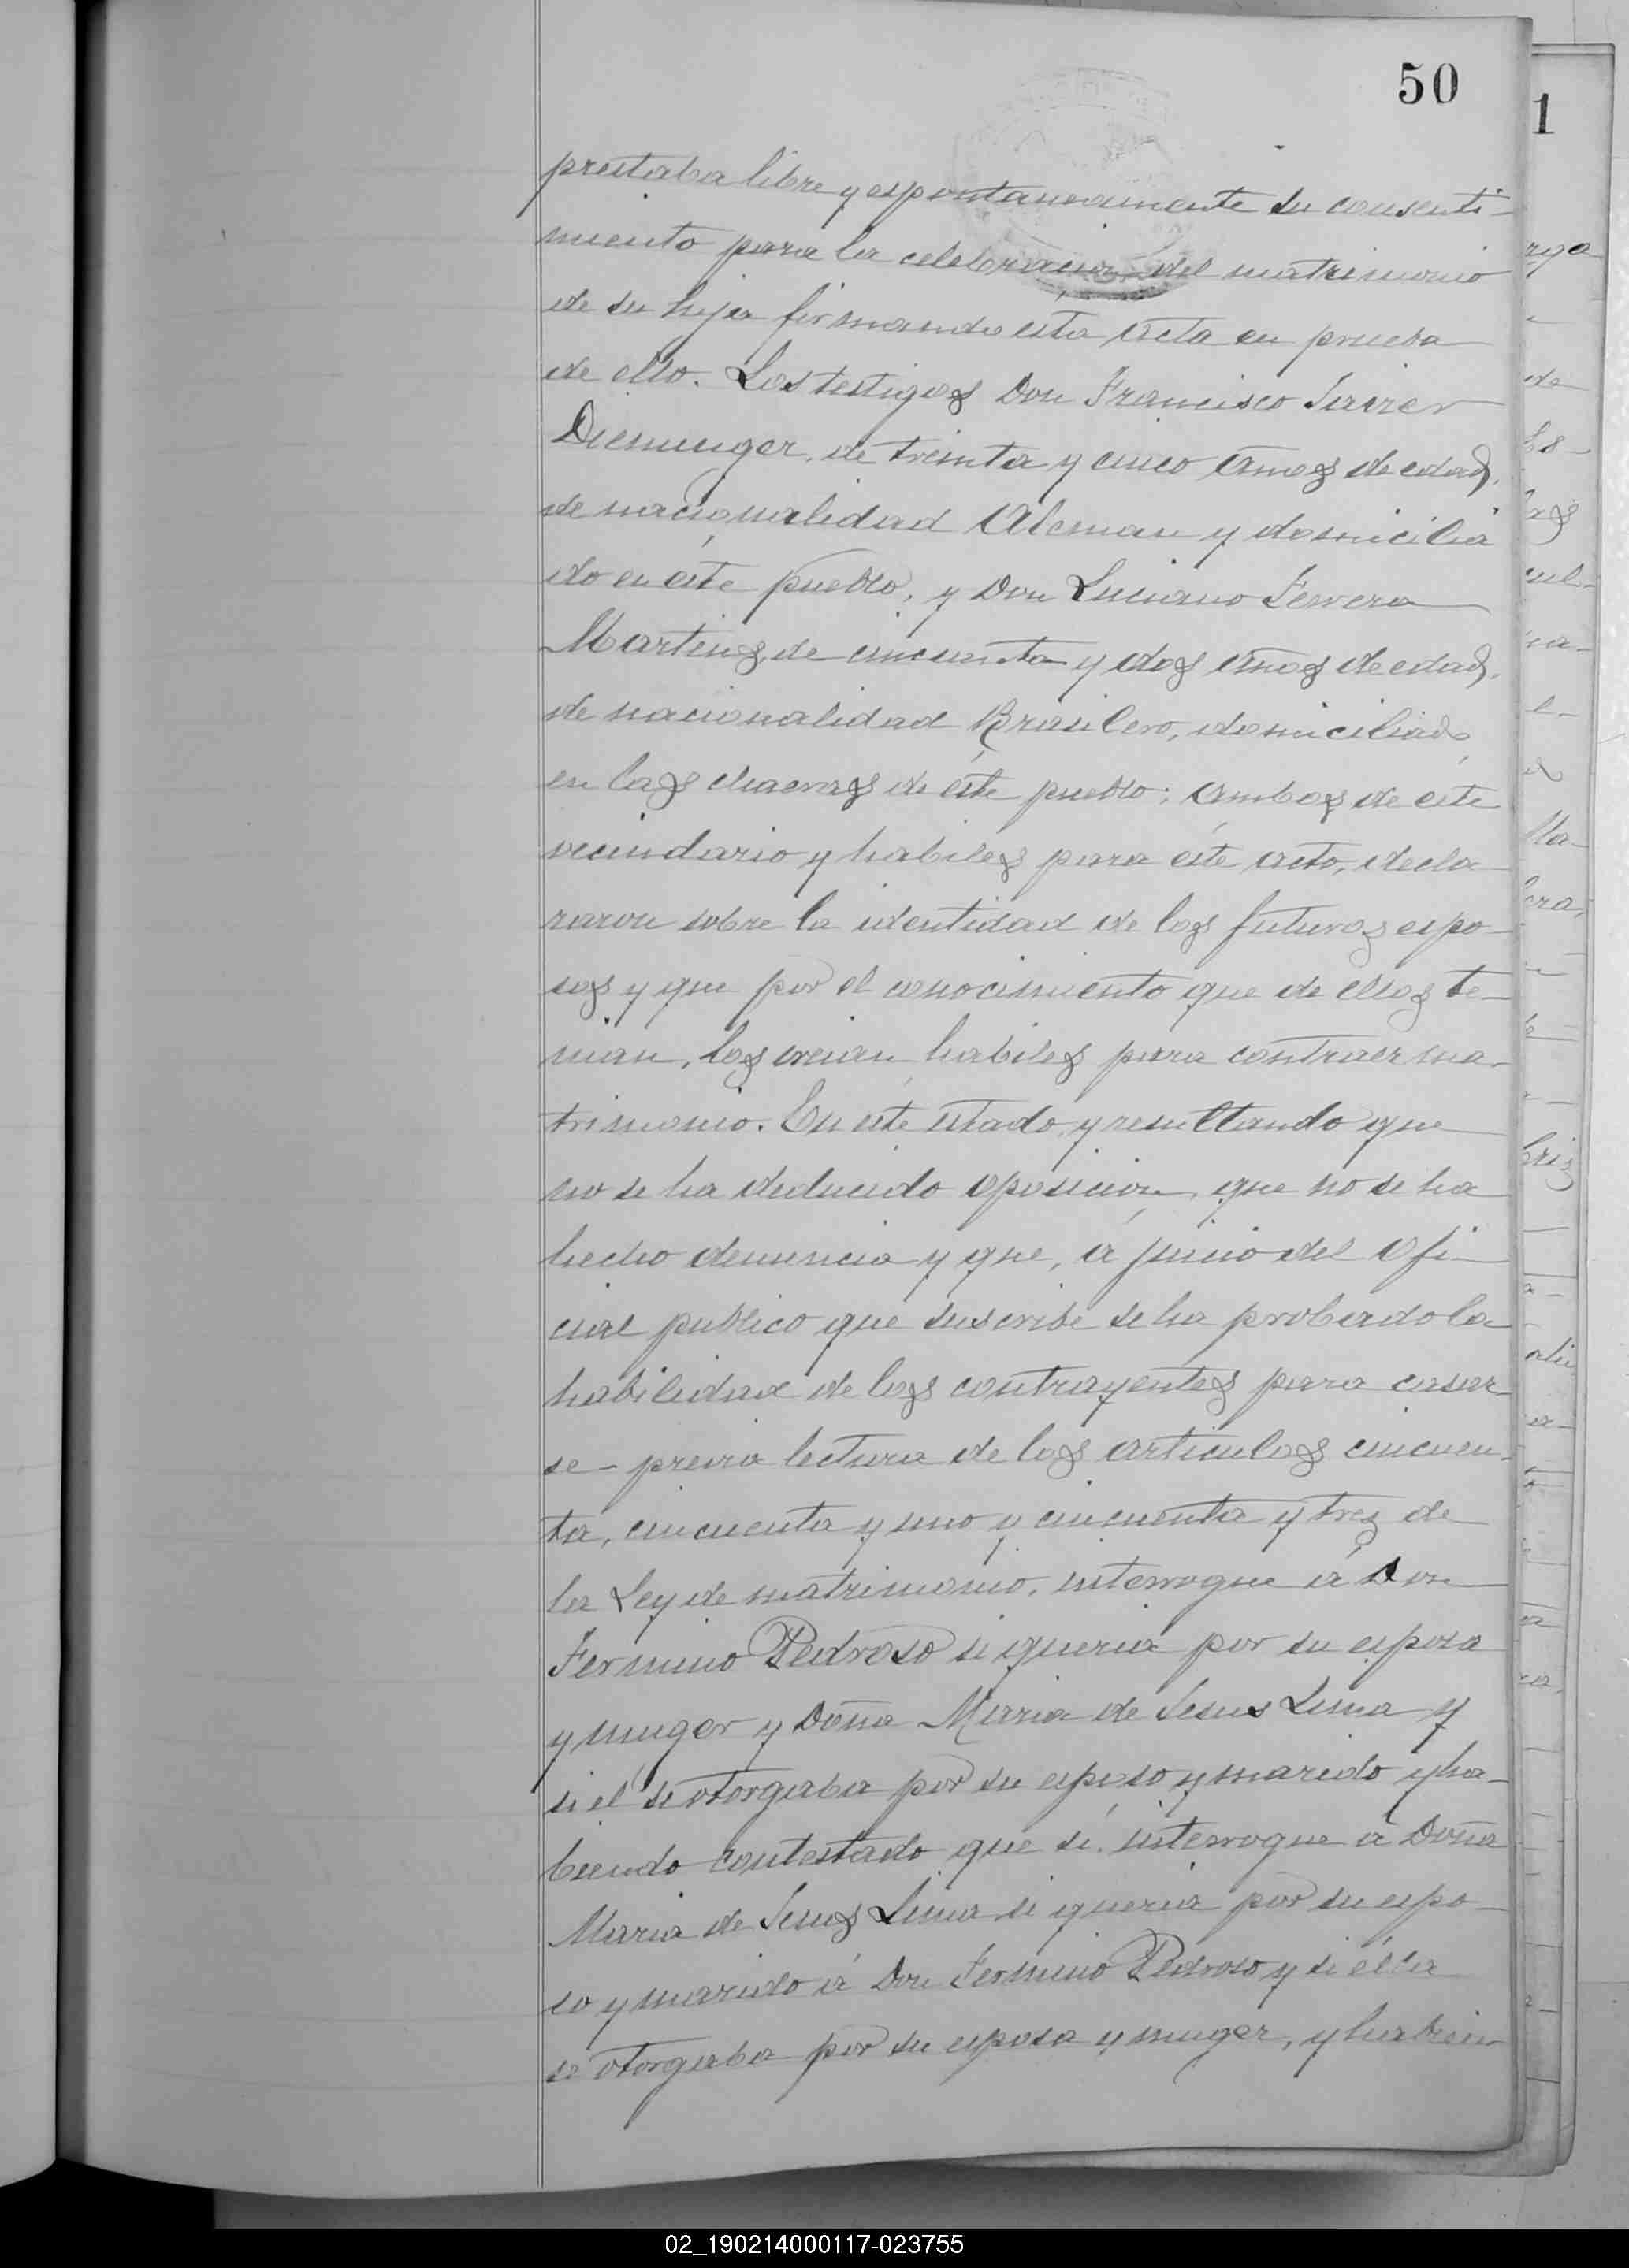 50
1
prestaba libre y espontaneamente su consenti-
miento para la celebracion del matrimonio
de su hija firmando esta acta en prueba
de ello. Los testigos Don Francisco Javier
de treinta y cinco años de edad,
de nacionalidad Aleman y domicilia
do en éste pueblo, y Don Luciano Ferrera
Martins, de cincuenta y dos años de edad,
de nacionalidad Brasilero, domiciliado
en las chacras de éste pueblo; ambos de este
vecindario y habiles para éste acto, decla
raron sobre la identidad de los futuros espo-
sos y que por el conocimiento que de ellos te-
nian, los creian habiles para contraer ma-
trimonio. En este estado, y resultando que
no se ha deducido oposicion, que no se ha
hecho denuncia y que, á juicio del Ofi-
cial publico que suscribe se ha probado la
habilidad de los contrayentes para casar
se - previa lectura de los articulos cincuen-
ta, cincuenta y uno y cincuenta y tres de
la Ley de matrimonio, interrogue á Don
Fermino Pedroso si queria por su esposa
y muger y Doña Maria de Jesus Lima y
si él se otorgaba por su esposo y marido y ha-
biendo contestado que sí, interrogue á Doña
Maria de Jesus Lima si queria por su espo-
so y marido á Don Fermino Pedroso y si élla
se otorgaba por su esposa y muger, y habien
02_190214000117-023755